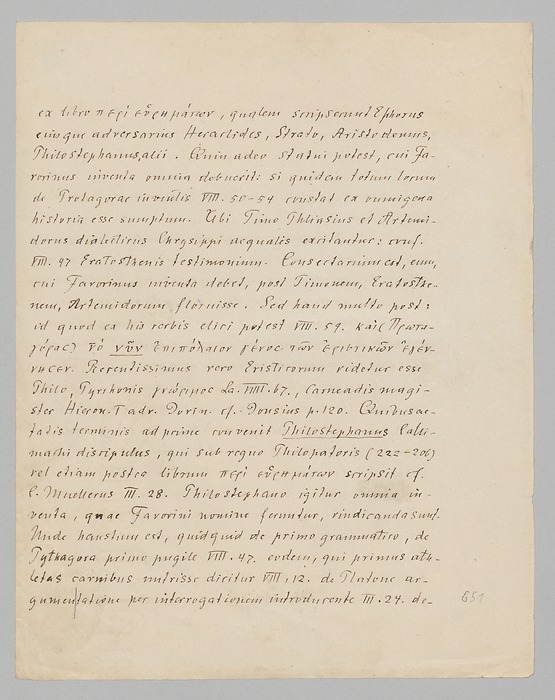 ex libro περὶ εὑρημάτων, qualem scripserunt Ephorus
eiusque adversarius Heraclides, Strato, Aristodemus,
Philostephanus, alii. Quin adeo statui potest, cui Fa-
vorinus inventa omnia debuerit: si quidem totum lemma
de Protagorae inventis VIIII. 50-54 constat ex omnigera
historia esse sumptum. Ubi Timo Phliasius et Artemi-
dorus dialecticus Chrysippi aequalis excitantur: conf.
VIII. 47 Eratosthenis testimonium. Consectarium est, eum,
cui Favorinus inventa debet, post Timonem, Eratosthe-
nem, Artemidorum floruisse. Sed haud multo post:
id quod ex his verbis elici potest VIIII. 52. καὶ (Πρωτα-
γόρας) τὸ νῦν ἐπιπόλαιον γένος τῶν ἐριστικῶν ἐγέν-
νησεν. Recentissimus vero Eristicorum videtur esse
Philo, Pyrrhonis γνώριμος La. VIIII. 67., Carneadis magi-
ster Hieron. T adv. Iovin. cf. Ionsius p. 120. Quibus ae-
tatis terminis adprime convenit Philostephanus Calli-
machi discipulus, qui sub regno Philopatoris (222-206)
vel etiam postea librum περὶ εὑρημάτων scripsit cf.
C. Muellerus III. 28. Philostephano igitur omnia in-
venta, quae Favorini nomine feruntur, vindicanda sunt.
Unde haustum est, quidquid de primo grammatico, de
Pythagora primo pugile VIII. 47. eodem, qui primus ath-
letas carnibus nutrisse dicitur VIII, 12. de Platone ar-
gumentatione per interrogationem introducente III. 24. de-
651